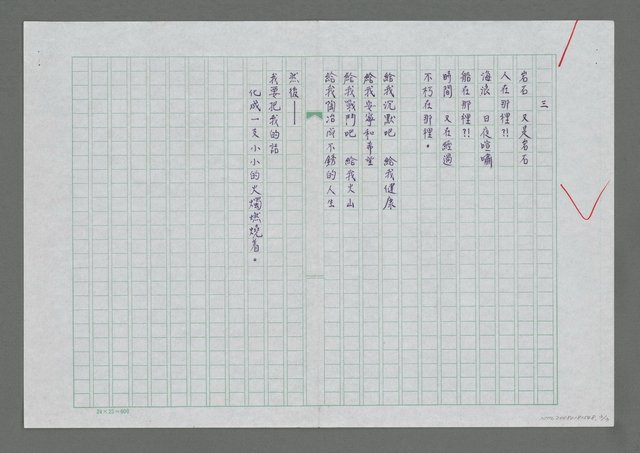 三
岩石　又是岩石
人在那裡?!
海浪　日夜喧嘯
船在那裡?!
時間　又在經過
不朽在那裡。
給我沉默吧　給我健康
給我安寧和希望
給我戰鬥吧　給我火山
給我陶冶所不銹的人生
然後——
我要把我的話
化成一支小小的火燭燃燒着。
24×25=600